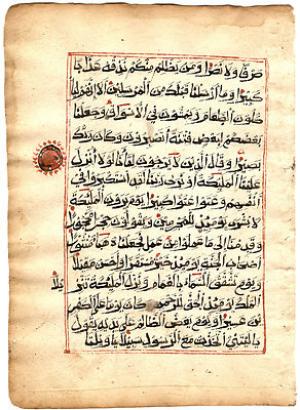 صرفا ولا نصرا ومن يظلم منكم نذقه عذابا
كبيرا وما ارسلنا قبلك من المرسلين الا انهم ليا
كلون الطعام ويمشون في الاسواق وجعلنا
بعضكم لبعض فتنة اتصبرون وكان ربك
بصيرا وقال الذين لا يرجون لقاءنا لولا انزل
علينا الملئكة او نرى ربنا لقد استكبروا في
انفسهم وعتو عتوا كبيرا يوم يرون الملئكة
لا بشرى يومئذ للمجرمين ويقولون حجرا محجورا
وقدمنا الى ما عملوا من عمل فجعلنه هباء منثورا
اصحب الجنة يومئذ خير مستقرا واحسن مقيلا
ويوم تشقق السماء بالغمام ونزل الملئكة تنز يلا
الملك يومئذ الحق للرحمن وكان يوما على الكفر
ين عسيرا ويوم يعض الظالم على يديه يقول
يليتني اتخذت مع الرسول سبيلا يويلتى